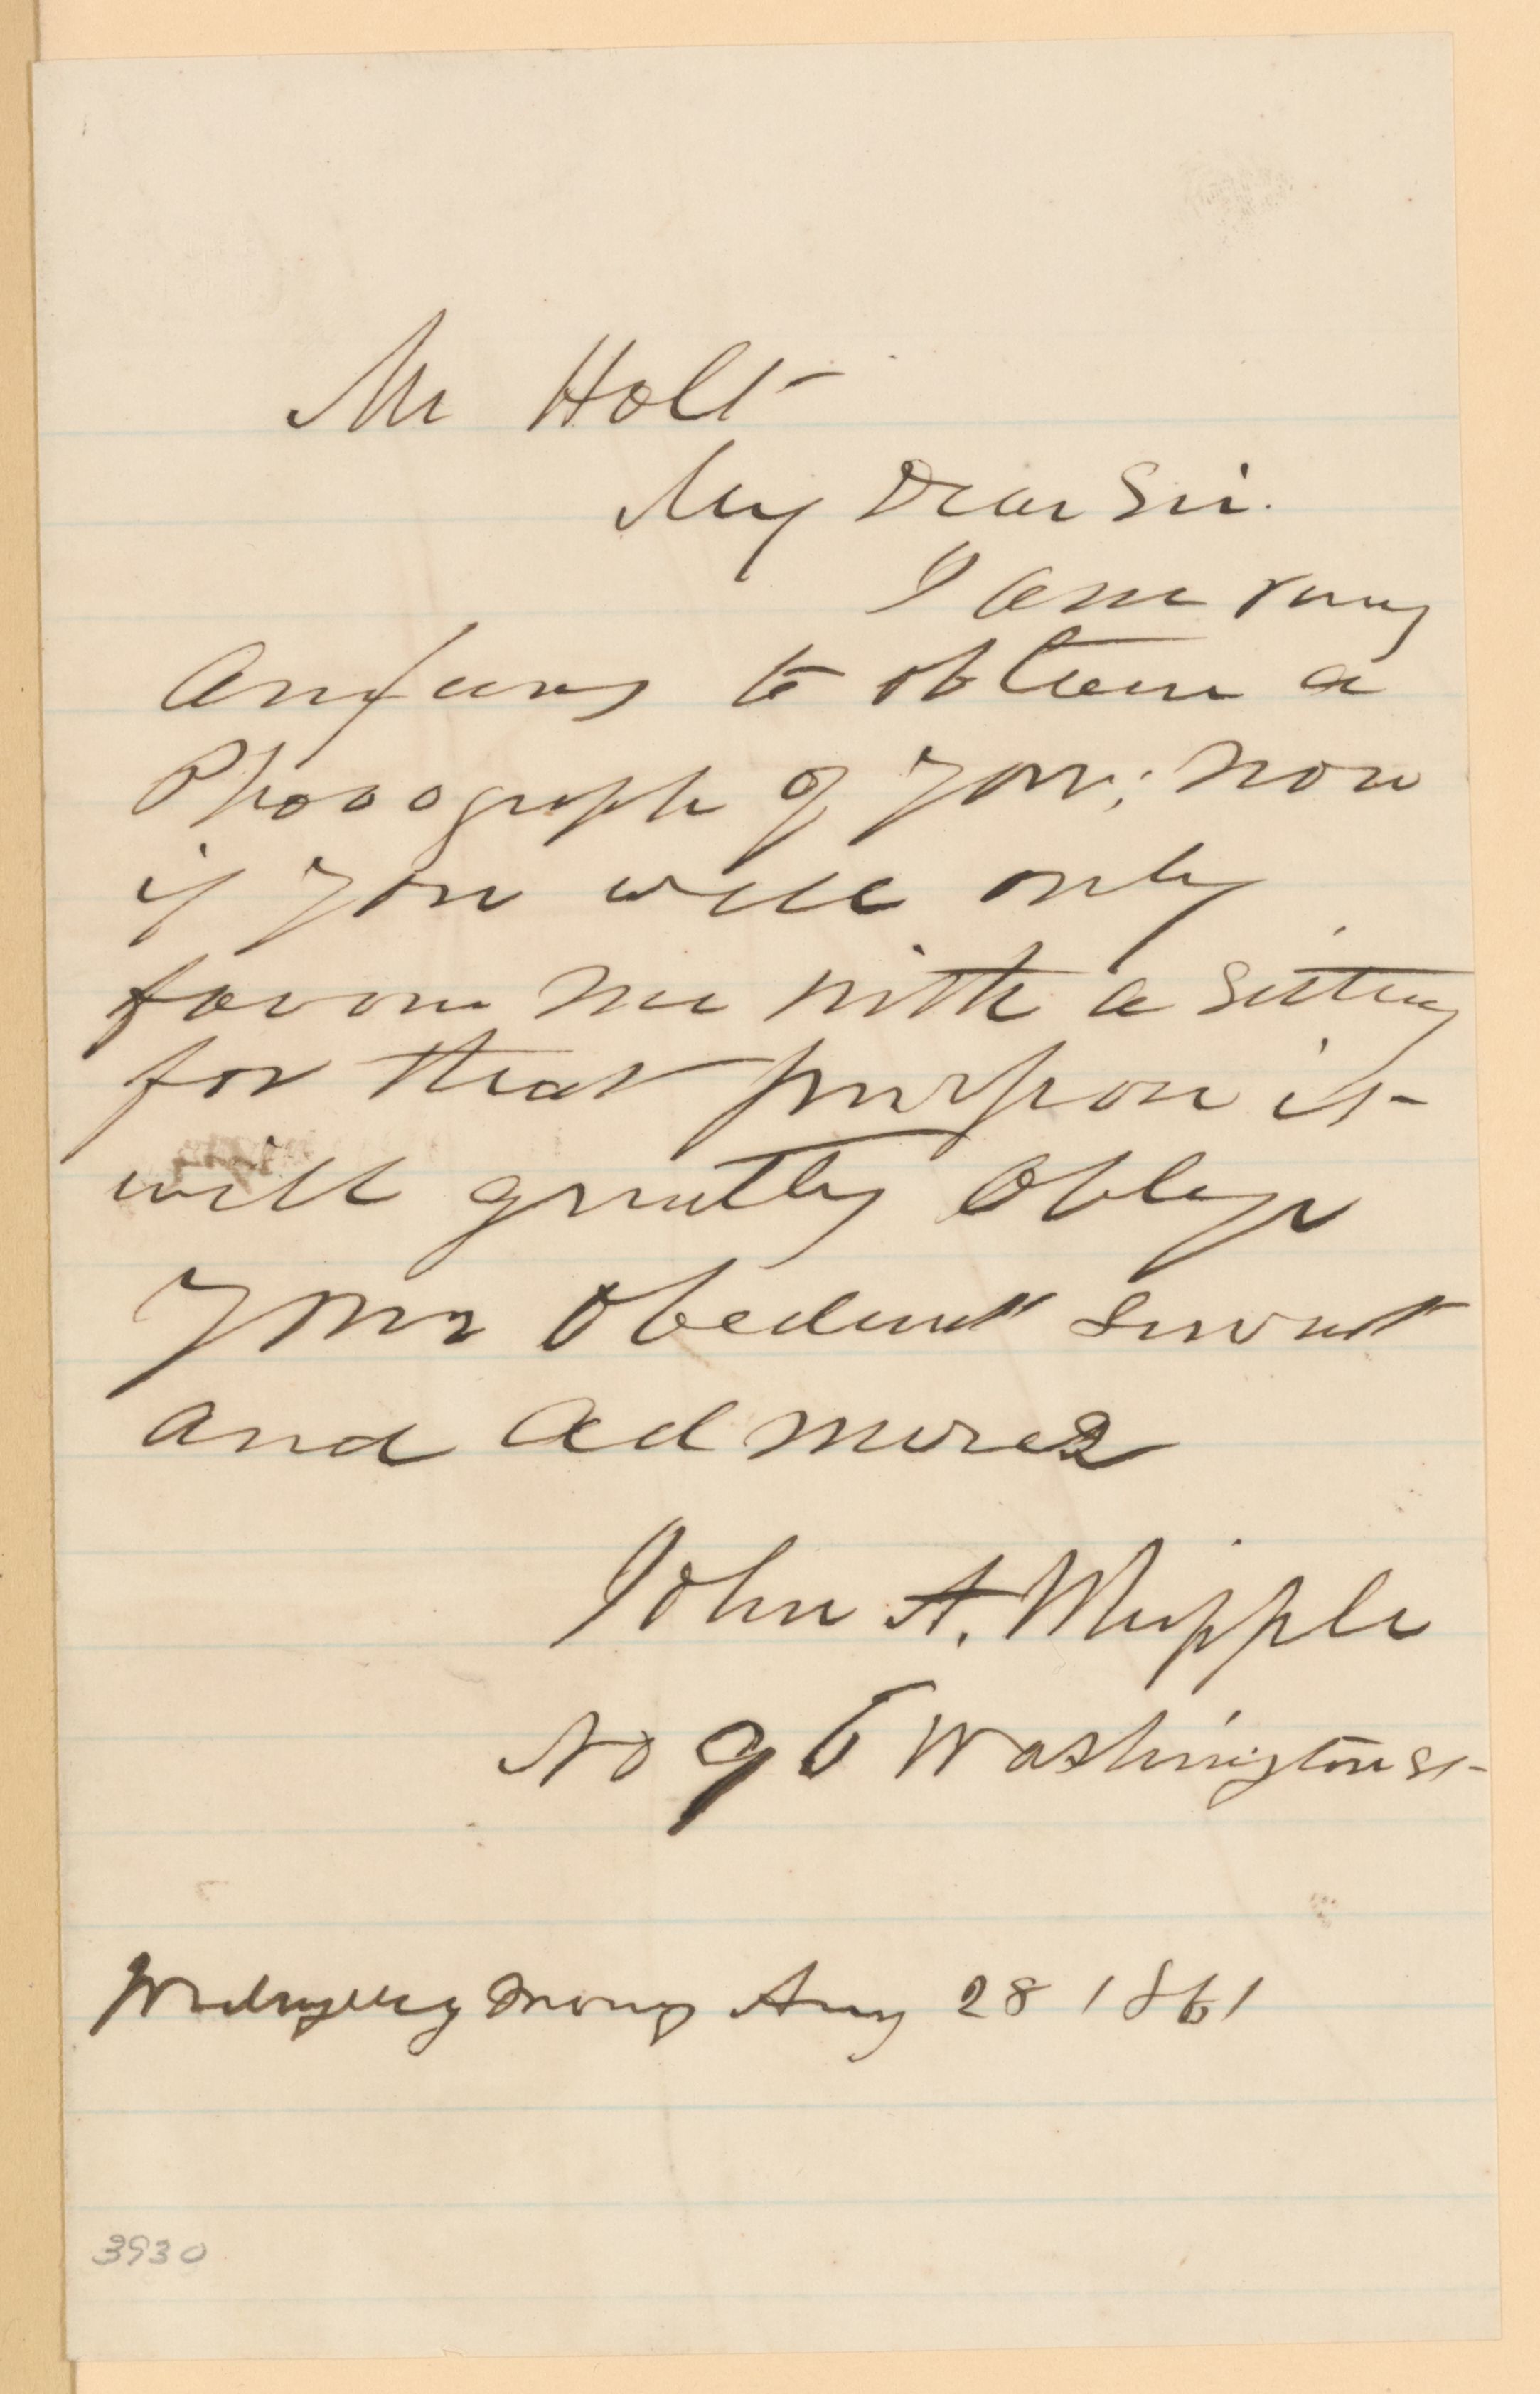 Mr Holt
My Dear Sir.
I am very
Anxious to obtain a
Photograph of you; now
if you will only
favour me with a sitting
for that purpose it
will greatly oblige
Your Obedient servant
and Admirer
John A. Whipple
No 96 Washington st
Wednesday morng Aug 28 1861
3930